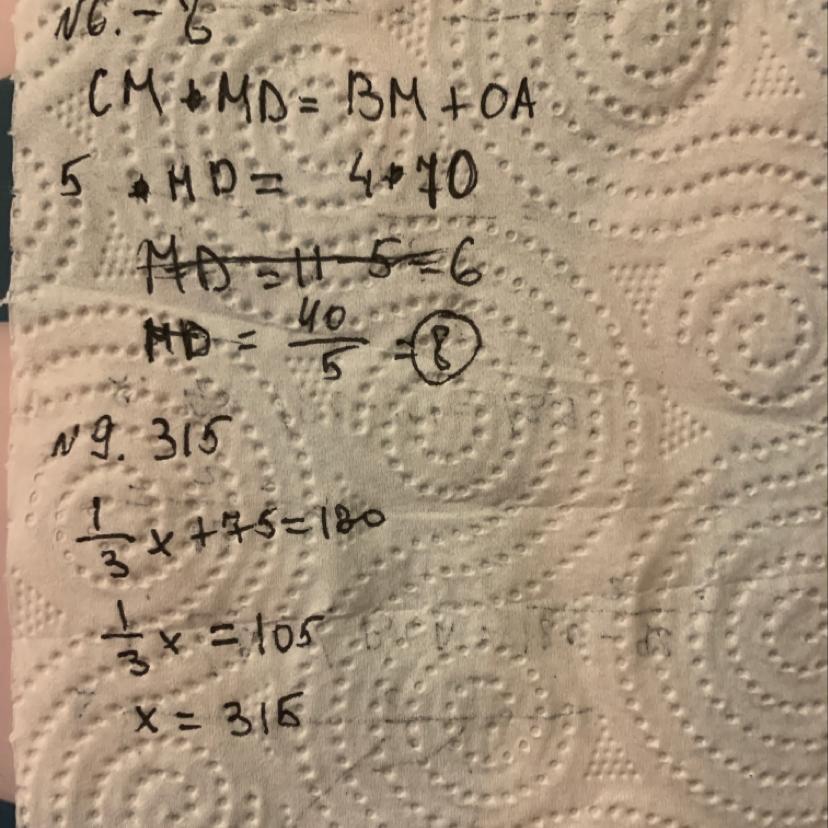 N6. - 8
CM • MD = BM + OA
5 • MD = 4 • 10
MD = 11 - 5 = 6
MD = 40/5 = 8
N9. 315
1/3 x + 75 = 180
1/3 x = 105
x = 315